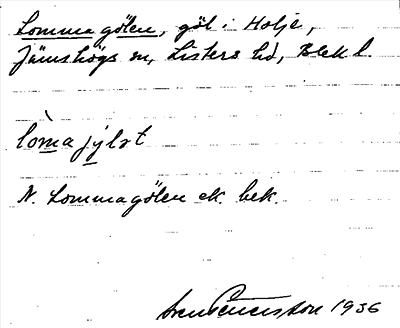 Lommagölen, göl i Holje,
Jämshögs sn, Listers hd, Blek l.
lòmajylət
N. Lommagölen ek. bek.
Sven Benson 1936